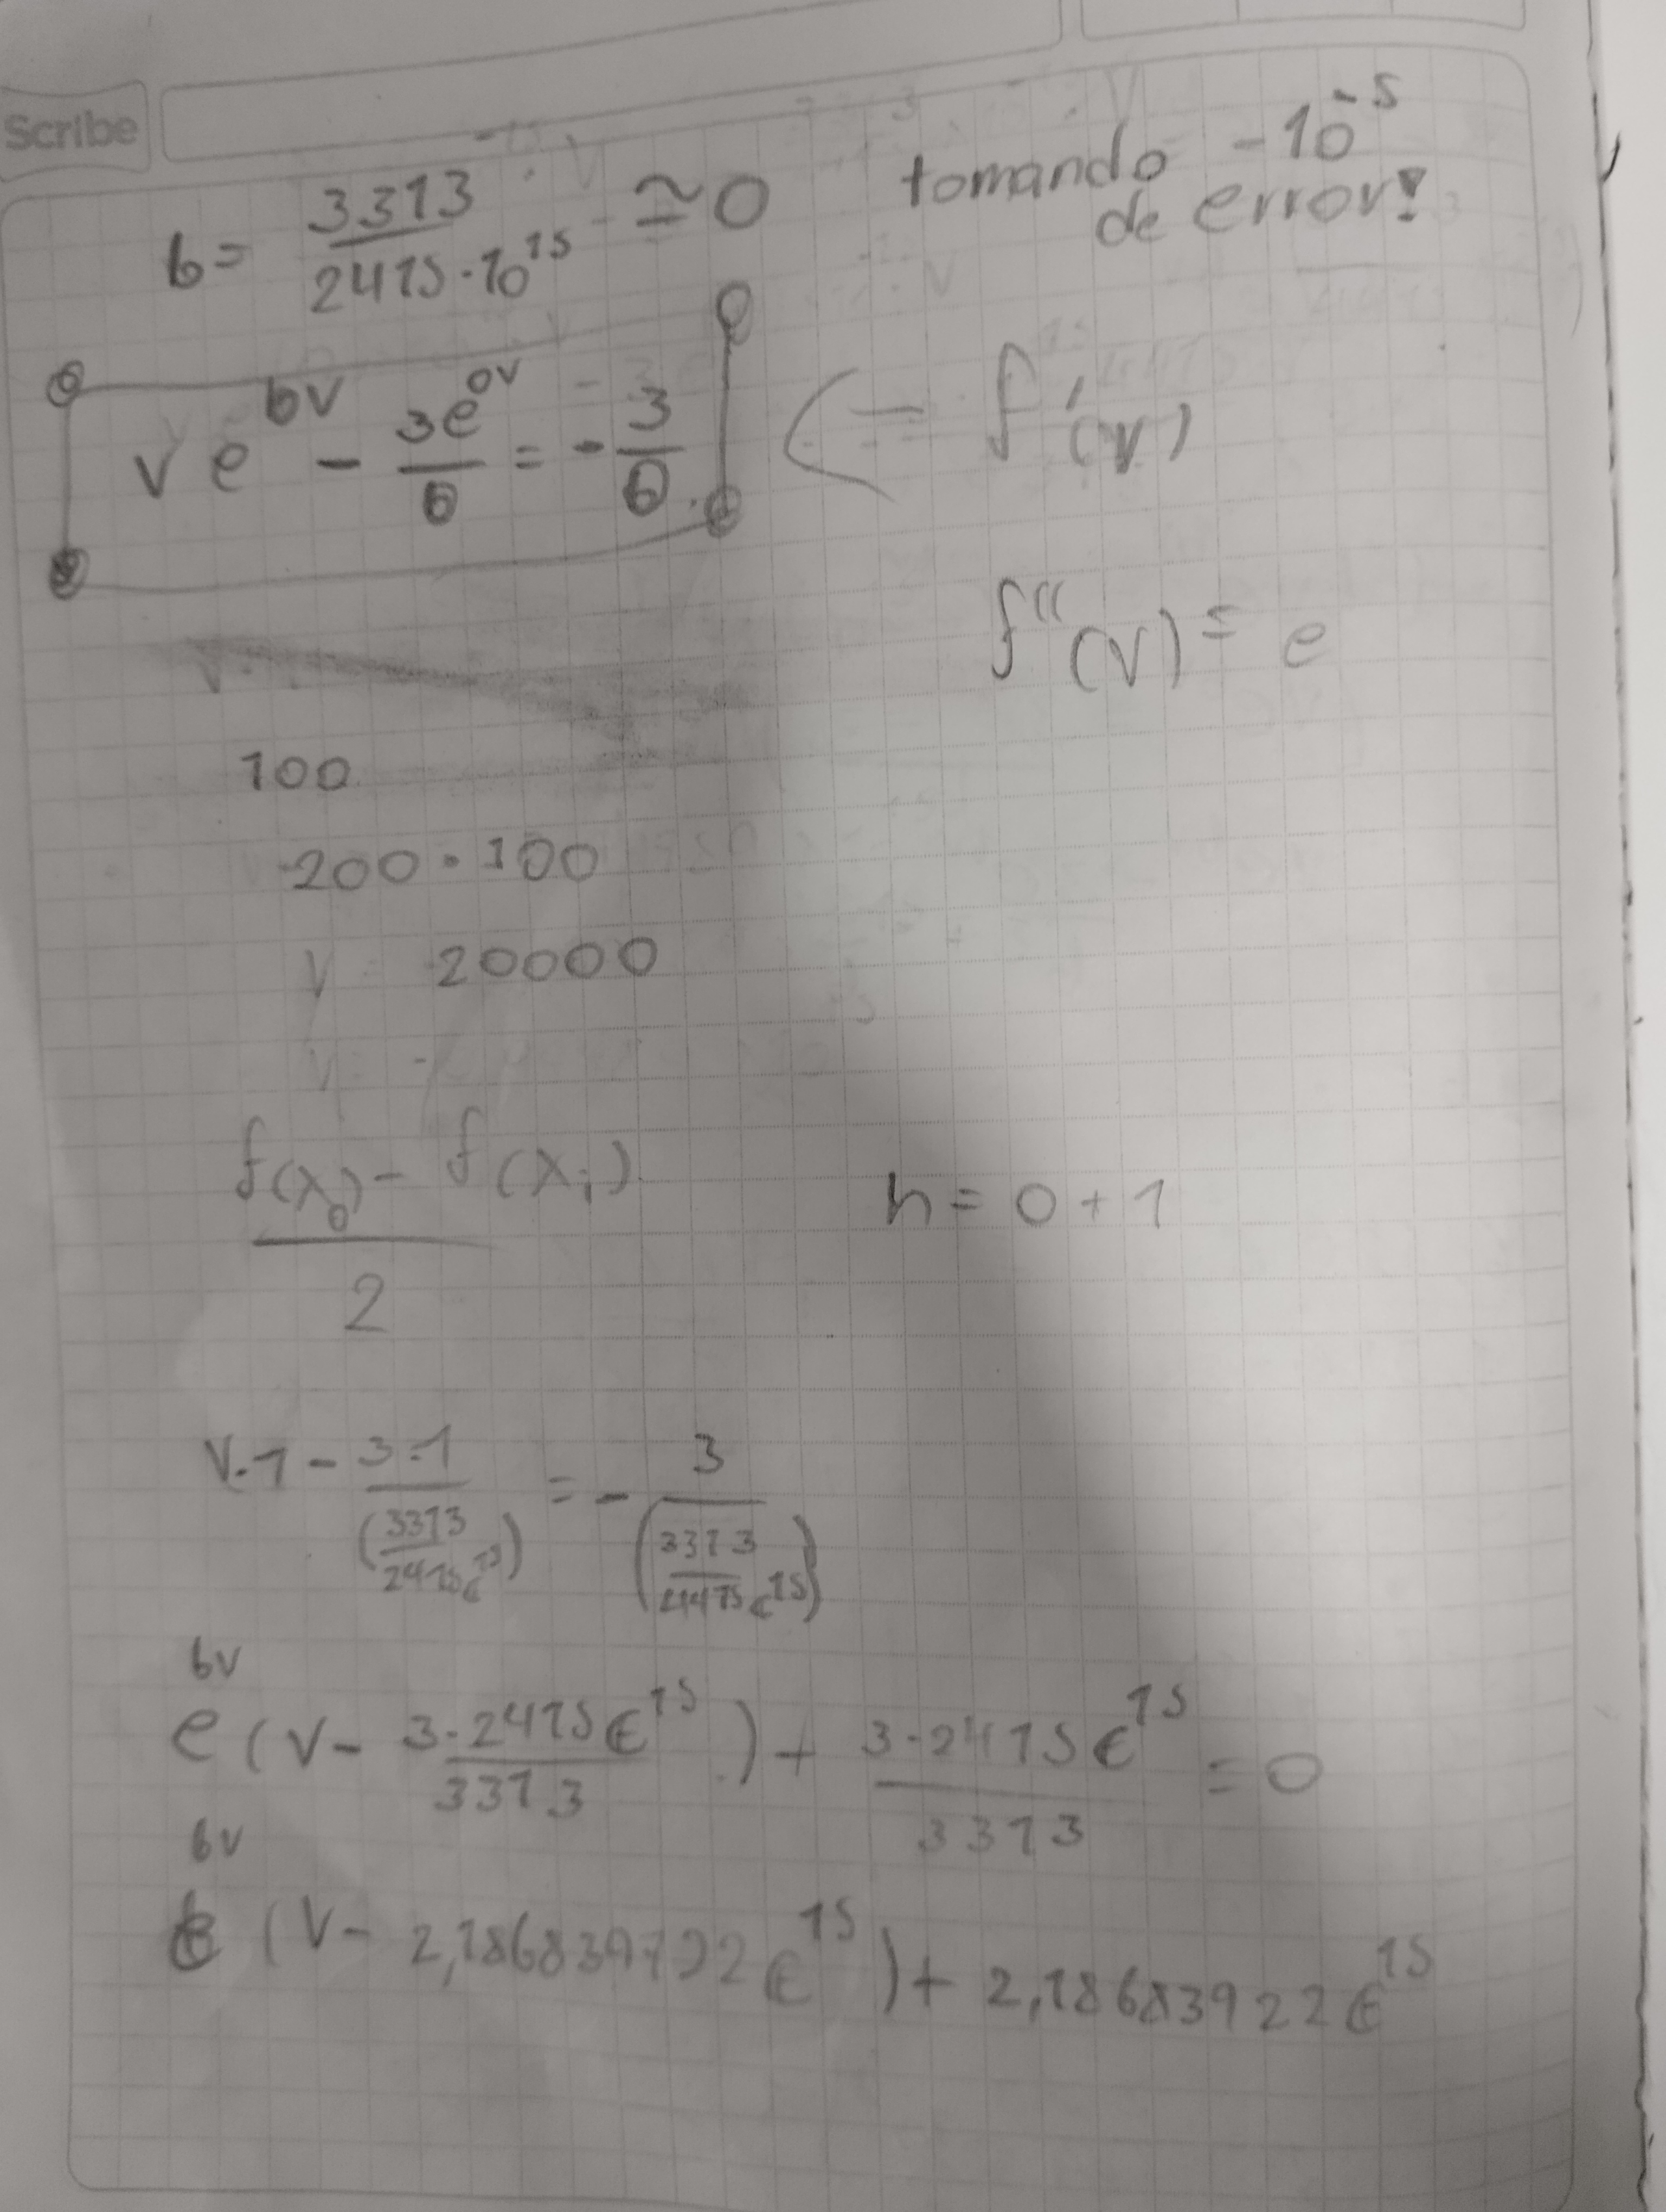 Scribe
b = 3313 / 2415·10^15 ≃ 0 tomando -10^-5
de error!
v e^bv - 3e^bv / b = - 3 / b <= f'(v)
f''(v) = e
100
200·100
v 20000
f(x0) - f(xi) / 2 n = 0 + 1
v·1 - 3·1 / (3313 / 2415ϵ^15) = - 3 / (3313 / 2415ϵ^15)
e^bv (v - 3·2415ϵ^15 / 3313) + 3·2415ϵ^15 / 3313 = 0
e^bv (v - 2,186839722ϵ^15) + 2,18683922ϵ^15